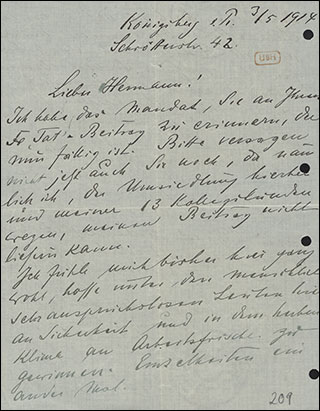 Königsberg i. Pr. 3/5 1914
Schrötterstr. 42.
UBH
Lieber Hermann!
Ich habe das Mandat, Sie an Ihren
Beitrag zu erinnern, der
nun fällig ist. Bitte versagen
nicht jetzt auch Sie noch, da näm-
lich ich, der Umsiedlung hierher
und meiner 13 Kollegstunden
wegen, meinen Beitrag nicht
liefern kann.
Ich fühle mich bisher hier ganz
wohl, hoffe unter den menschlich
sehr anspruchslosen Leuten hier
an Sicherheit und in dem herben
Klima an Arbeitsfrische zu
gewinnen. Einzelheiten ein
ander Mal.
209